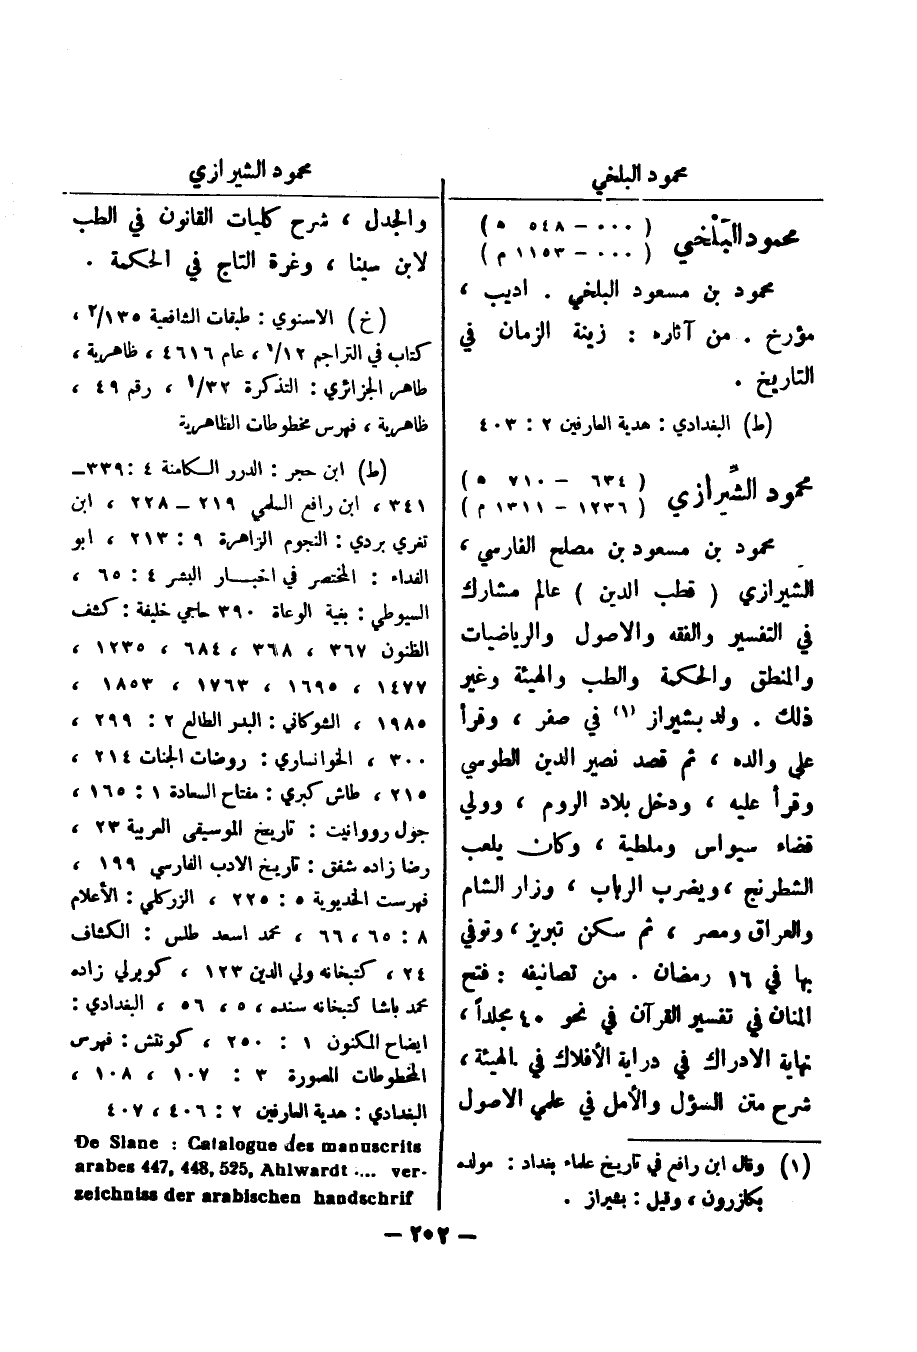 محمود البلخي
محمود البَلْخي
( ٠٠٠ – ٥٤٨ ه )
( ٠٠٠ – ١١٥٣ م )
محمود بن مسعود البلخي . اديب ،
مؤرخ . من آثاره : زينة الزمان في
التاريخ .
(ط) البغدادي : هدية العارفين ٢ : ٤٠٣
محمود الشِّيرازي
( ٦٣٤ – ٧١٠ ه )
( ١٢٣٦ – ١٣١١ م )
محمود بن مسعود بن مصلح الفارسي ،
الشيرازي ( قطب الدين ) عالم مشارك
في التفسير والفقه والاصول والرياضيات
والمنطق والحكمة والطب والهيئة وغير
ذلك . ولد بشيراز (١) في صفر ، وقرأ
على والده ، ثم قصد نصير الدين الطوسي
وقرأ عليه ، ودخل بلاد الروم ، وولي
قضاء سيواس وملطية ، وكان يلعب
الشطرنج ، ويضرب الرباب ، وزار الشام
والعراق ومصر ، ثم سكن تبريز ، وتوفي
بها في ١٦ رمضان . من تصانيفه : فتح
المنان في تفسير القرآن في نحو ٤٠ مجلداً ،
نهاية الادراك في دراية الأفلاك في الهيئة ،
شرح متن السؤل والأمل في علمي الاصول
(١) وقال ابن رافع في تاريخ علماء بغداد : مولده
بكازرون ، وقيل : بشيراز .
محمود الشيرازي
والجدل ، شرح كليات القانون في الطب
لابن سينا ، وغرة التاج في الحكمة .
(خ) الاسنوي : طبقات الشافعية ٢/١٣٥ ،
كتاب في التراجم ١/١٢ ، عام ٤٦١٦ ، ظاهرية ،
طاهر الجزائري : التذكرة ١/٣٢ ، رقم ٤٩ ،
ظاهرية ، فهرس مخطوطات الظاهرية
(ط) ابن حجر : الدرر الكامنة ٤ : ٣٣٩–
٣٤١ ، ابن رافع السلمي ٢١٩ – ٢٢٨ ، ابن
تغري بردي : النجوم الزاهرة ٩ : ٢١٣ ، ابو
الفداء : المختصر في اخبار البشر ٤ : ٦٥ ،
السيوطي : بغية الوعاة ٣٩٠ حاجي خليفة : كشف
الظنون ٣٦٧ ، ٣٦٨ ، ٦٨٤ ، ١٢٣٥ ،
١٤٧٧ ، ١٦٩٥ ، ١٧٦٣ ، ١٨٥٣ ،
١٩٨٥ ، الشوكاني : البدر الطالع ٢ : ٢٩٩ ،
٣٠٠ ، الخوانساري : روضات الجنات ٢١٤ ،
٢١٥ ، طاش كبري : مفتاح السعادة ١ : ١٦٥ ،
جول رووانيت : تاريخ الموسيقى العربية ٢٣ ،
رضا زاده شفق : تاريخ الادب الفارسي ١٩٩ ،
فهرست الخديوية ٥ : ٢٢٥ ، الزركلي : الأعلام
٨ : ٦٥ ، ٦٦ ، محمد اسعد طلس : الكشاف
٢٤ ، كتبخانه ولي الدين ١٢٣ ، كوبرلي زاده
محمد باشا كتبخانه سنده ، ٥ ، ٥٦ ، البغدادي :
ايضاح المكنون ١ : ٢٥٠ ، كونتش : فهرس
المخطوطات المصورة ٣ : ١٠٧ ، ١٠٨ ،
البغدادي : هدية العارفين ٢ : ٤٠٦ ، ٤٠٧
De Slane : Catalogue des manuscrits
arabes 447, 448, 525, Ahlwardt .... ver-
zeichniss der arabischen handschrif
– ٢٠٢ –